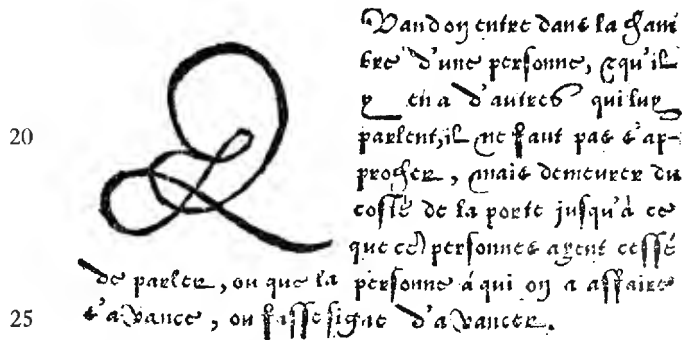 QVand on entre dans la cham
bre d'une personne, & qu'il
y en a d'autres qui luy
20 parlent, il ne faut pas s'ap-
procher, mais demeurer du
costé de la porte jusqu'à ce
que ces personnes ayent cessé
de parler, ou que la personne à qui on a affaire
25 s'avance, ou fasse signe d'avancer.